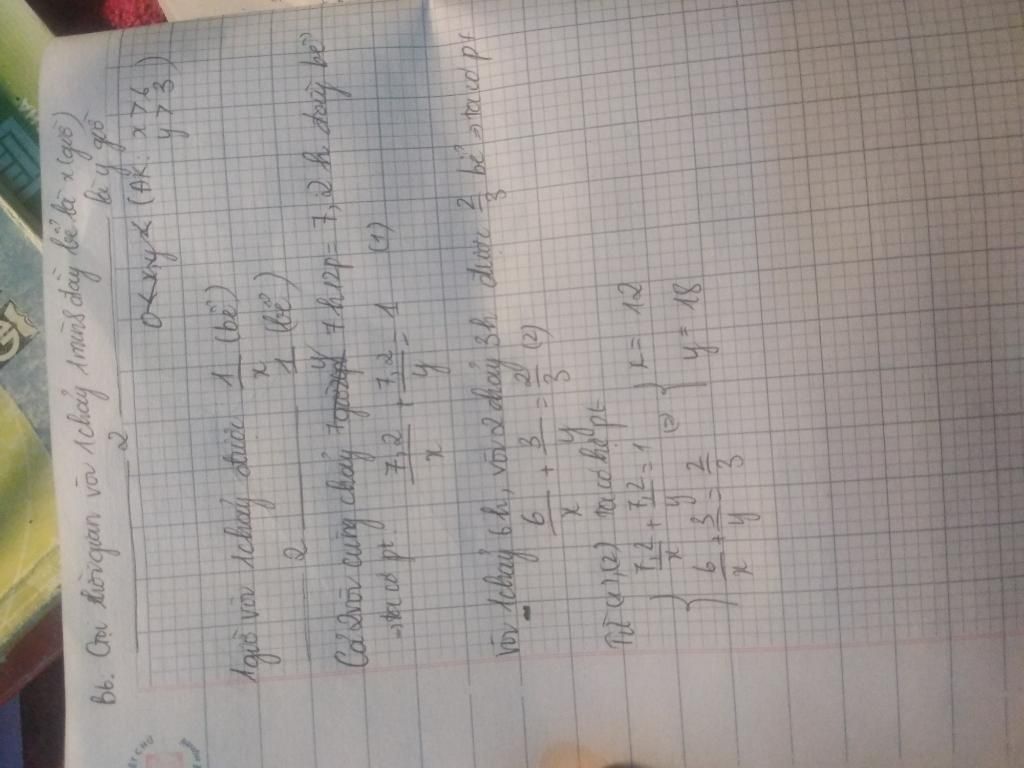 B6. Gọi thời gian vòi 1 chảy 1 mình đầy bể là x (giờ)
2 là y giờ
0 < x, y < (ĐK: x > 6
y > 3)
1 giờ vòi 1 chảy được 1/x (bể)
2 1/y (bể)
Cả 2 vòi cùng chảy 7h12p = 7,2h đầy bể
→ ta có pt 7,2/x + 7,2/y = 1 (1)
Vòi 1 chảy 6h, vòi 2 chảy 3h được 2/3 bể → ta có pt
6/x + 3/y = 2/3 (2)
Từ (1), (2) ta có hệ pt
{ 7,2/x + 7,2/y = 1 (=) { x = 12
6/x + 3/y = 2/3 y = 18